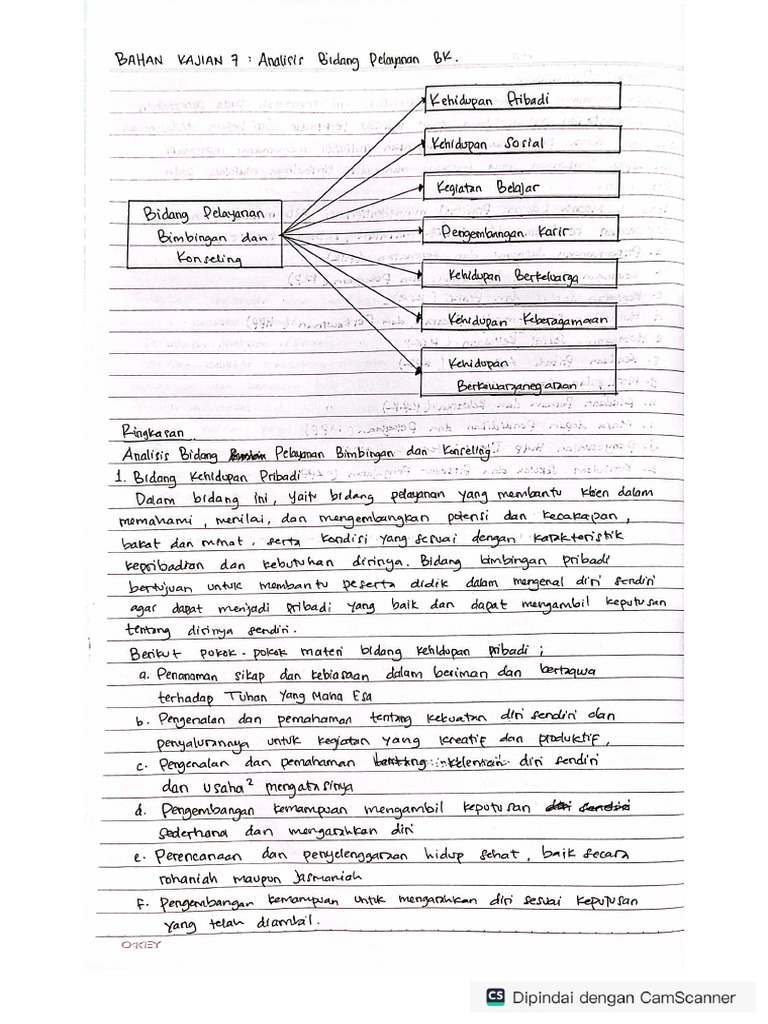 BAHAN KAJIAN 7 : Analisis Bidang Pelayanan BK.
Kehidupan Pribadi
Kehidupan Sosial
Kegiatan Belajar
Bidang Pelayanan
Bimbingan dan
Konseling
Pengembangan Karir
Kehidupan Berkeluarga
Kehidupan Keberagamaan
Kehidupan
Berkewarganegaraan
Ringkasan
Analisis Bidang Pelayanan Bimbingan dan Konseling
1. Bidang Kehidupan Pribadi
Dalam bidang ini, yaitu bidang pelayanan yang membantu klien dalam
memahami, menilai, dan mengembangkan potensi dan kecakapan,
bakat dan minat, serta kondisi yang sesuai dengan karakteristik
kepribadian dan kebutuhan dirinya. Bidang bimbingan pribadi
bertujuan untuk membantu peserta didik dalam mengenal diri sendiri
agar dapat menjadi pribadi yang baik dan dapat mengambil keputusan
tentang dirinya sendiri.
Berikut pokok-pokok materi bidang kehidupan pribadi ;
a. Penanaman sikap dan kebiasaan dalam beriman dan bertaqwa
terhadap Tuhan Yang Maha Esa
b. Pengenalan dan pemahaman tentang kekuatan diri sendiri dan
penyalurannya untuk kegiatan yang kreatif dan produktif,
c. Pengenalan dan pemahaman diri sendiri
dan usaha² mengatasinya
d. Pengembangan kemampuan mengambil keputusan diri sendiri
sederhana dan mengarahkan diri
e. Perencanaan dan penyelenggaraan hidup sehat, baik secara
rohaniah maupun jasmaniah
f. Pengembangan kemampuan untuk mengarahkan diri sesuai keputusan
yang telah diambil.
OKEY
CS Dipindai dengan CamScanner